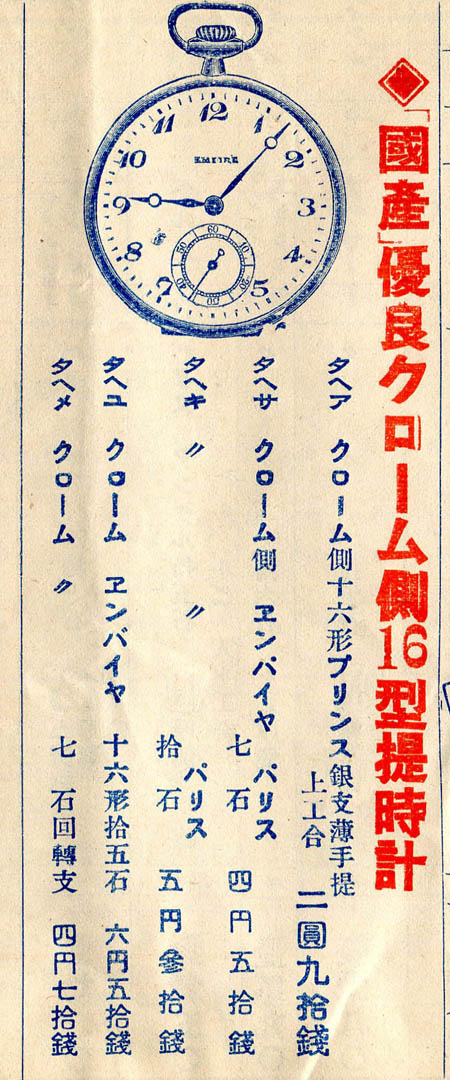 ◆「國産」優良クローム側16型提時計
タヘア クローム側十六形プリンス銀支薄手提
上工合 二圓九拾錢
タヘサ クローム側 ヱンバイヤ パリス
七石 四円五拾錢
タヘキ 〃 〃 パリス
拾石 五円參拾錢
タヘユ クローム ヱンバイヤ 十六形拾五石 六円五拾錢
タヘメ クローム 〃 七石回轉支 四円七拾錢
EMPIRE
12
1
2
3
4
5
7
8
9
10
11
60